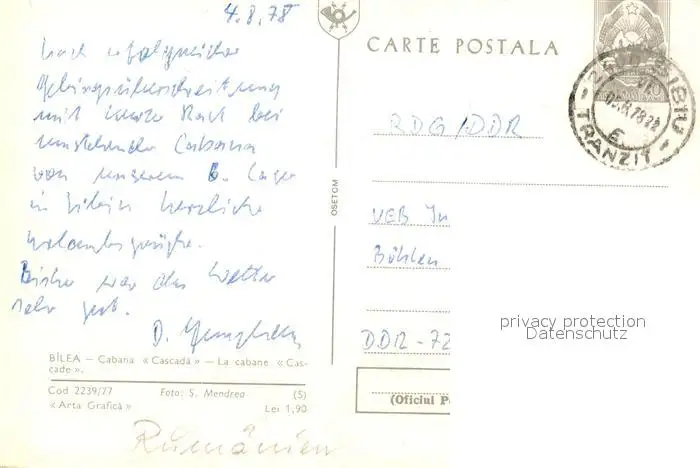 4.8.78
nach erfolgreicher
Gebirgsüberschreitung
mit kurzer Rast bei
umstehender Cabana
von unserem 6. Lager
in herzliche
Urlaubsgrüße.
Bisher war das Wetter
sehr gut.
D.
BÎLEA — Cabana « Cascadă » — La cabane « Cas-
cade ».
Cod 2239/77 Foto: S. Mendrea (5)
« Arta Grafică » Lei 1,90
Rumänien
OSETOM
CARTE POSTALA
SIBIU
TRANZIT
RDG/DDR
VEB In
Böhlen
DDR-72
(Oficiul P
privacy protection
Datenschutz